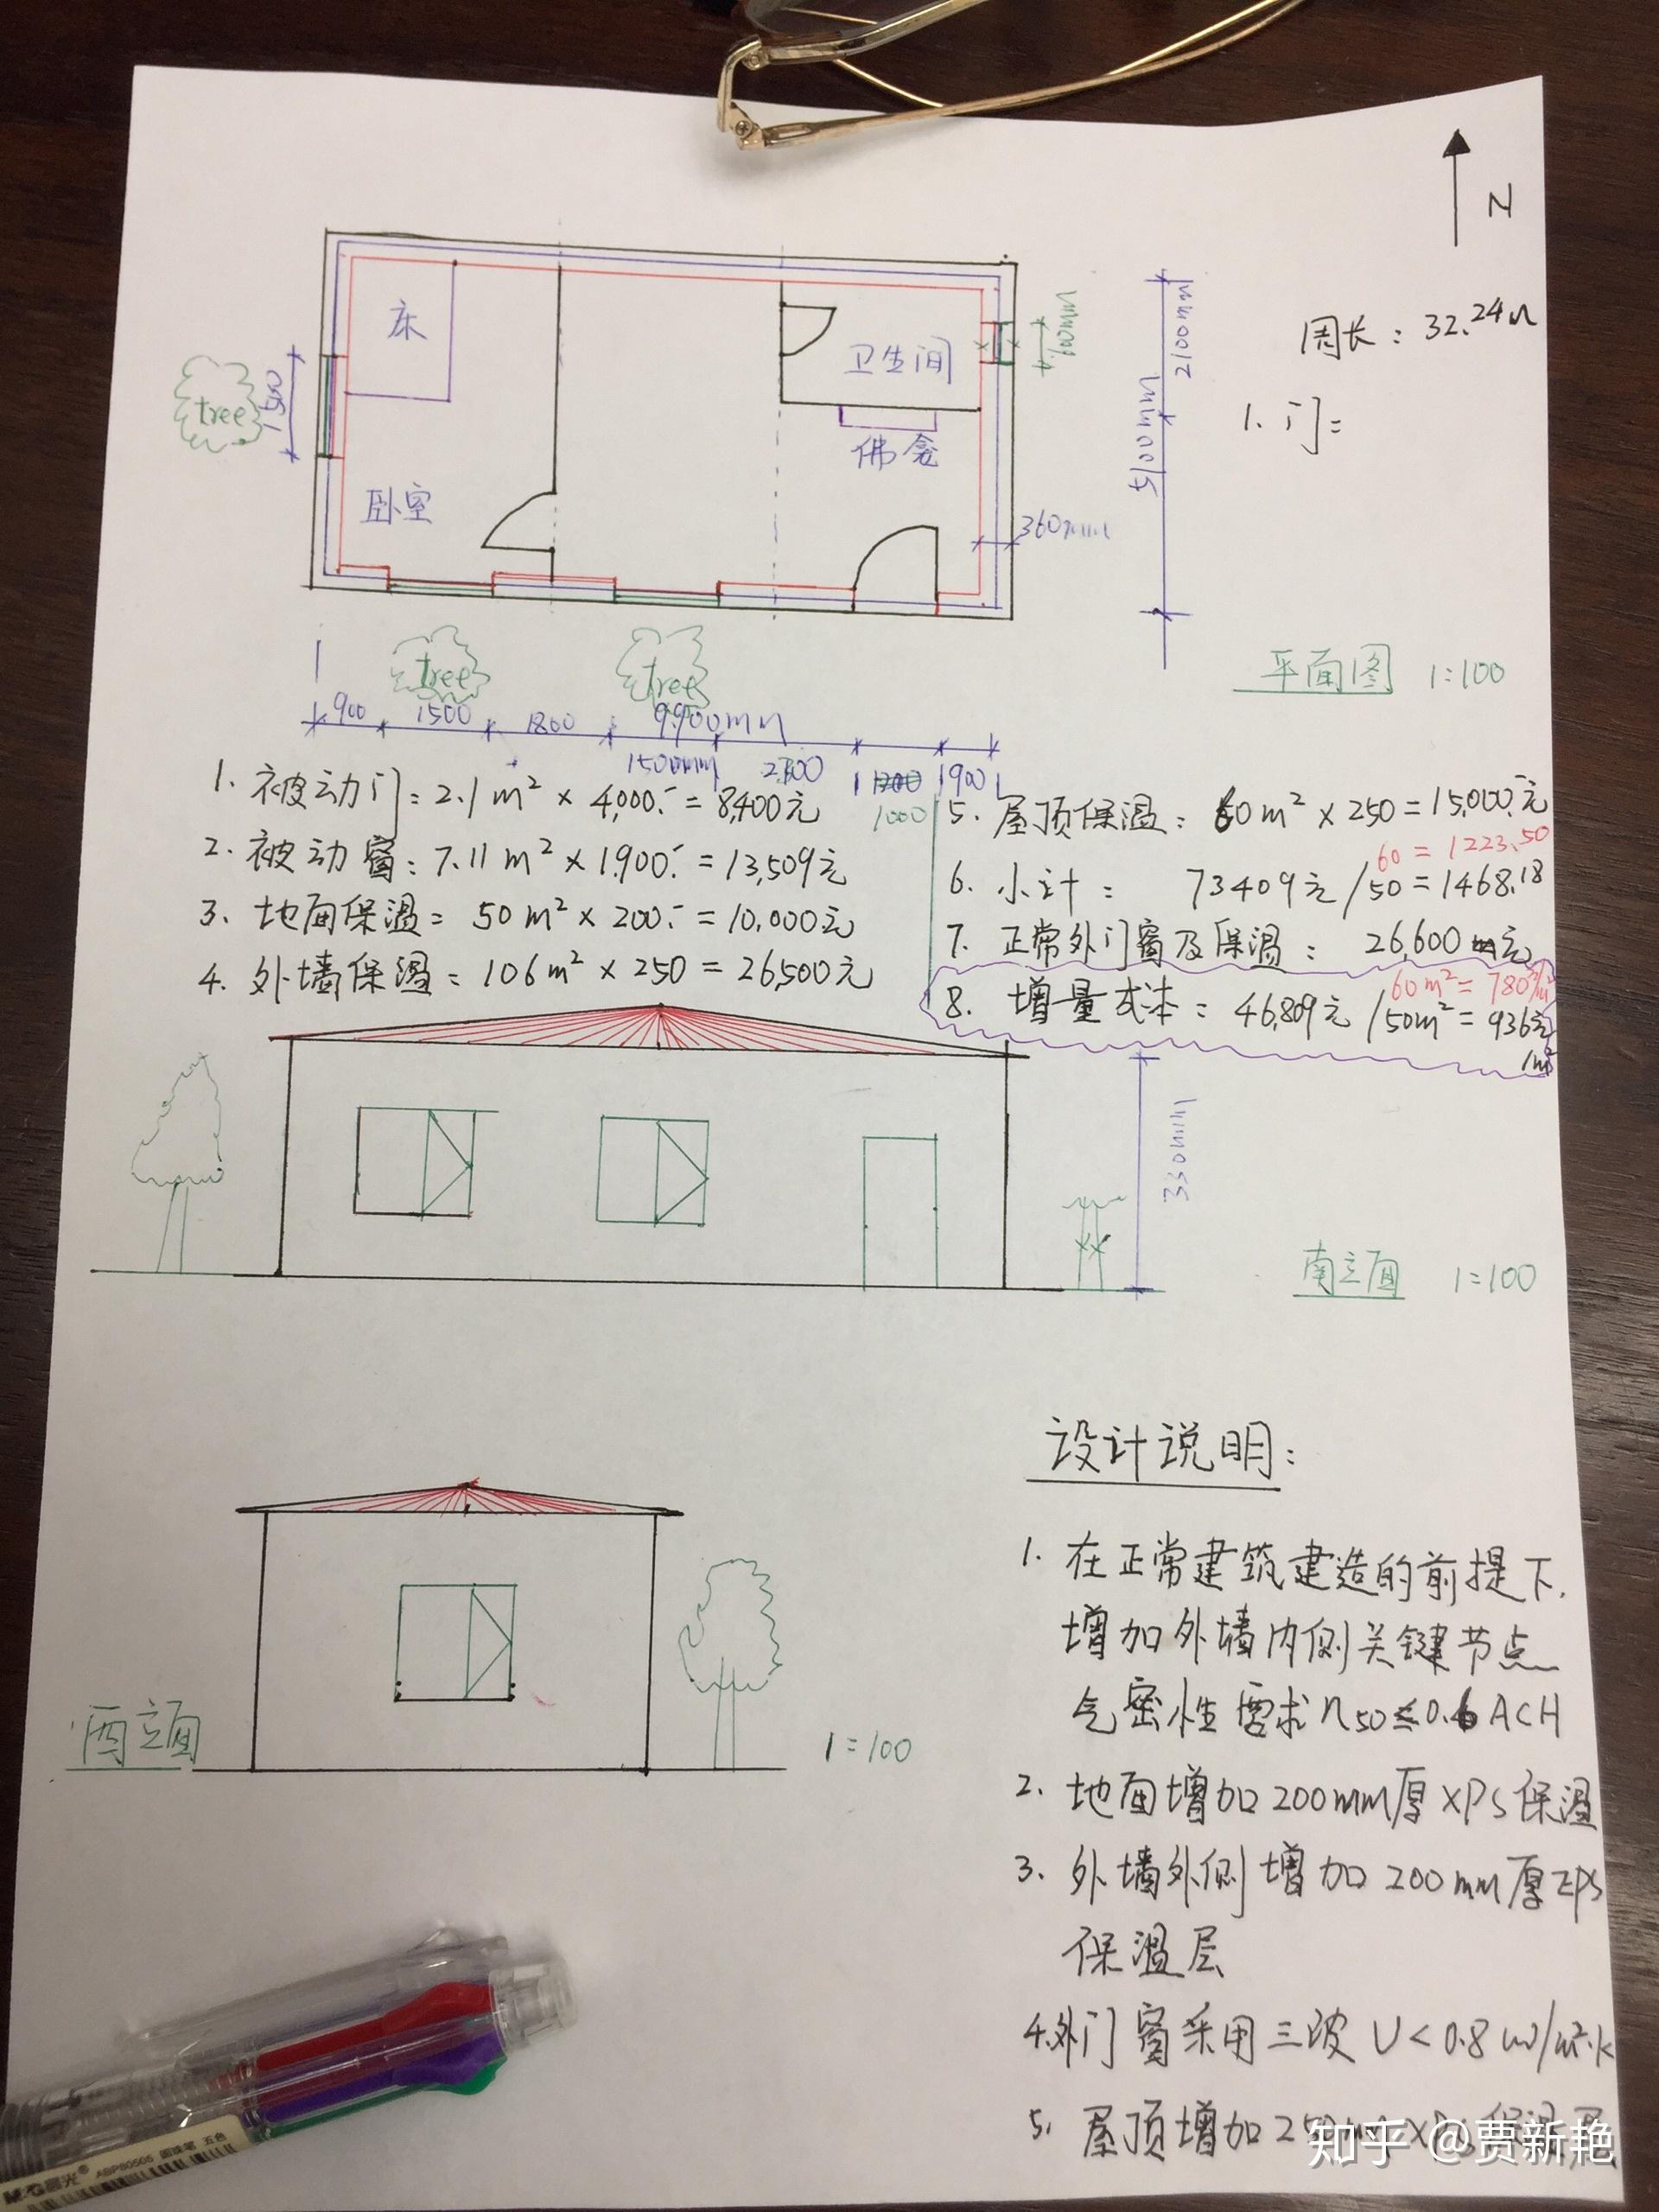 N
床
卫生间
佛龛
卧室
tree
1500
900mm
2100mm
5100mm
360mm
周长：32.24m
1. 门=
平面图 1:100
tree
tree
900
1500
1800
9.900mm
1500mm
2100
1000
900
1. 被动门：2.1m² × 4,000.- = 8,400元
2. 被动窗：7.11m² × 1.900.- = 13,509元
3. 地面保温= 50m² × 200.- = 10,000元
4. 外墙保温= 106m² × 250 = 26,500元
5. 屋顶保温：60m² × 250 = 15,000.元
60 = 1223.50
6. 小计： 73409元/50 = 1468.18
7. 正常外门窗及保温： 26,600元
60m² = 780元/m²
8. 增量成本： 46,809元/50m² = 936元/m²
3300mm
南立面 1=100
西立面 1=100
设计说明：
1. 在正常建筑建造的前提下,
增加外墙内侧关键节点
气密性需求n50≤0.6ACH
2. 地面增加200mm厚XPS保温
3. 外墙外侧增加200mm厚EPS
保温层
4.外门窗采用三玻 U<0.8w/m².k
5. 屋顶增加250mmXPS保温层
知乎 @贾新艳
M&G晨光® ABP80505 圆珠笔 五色